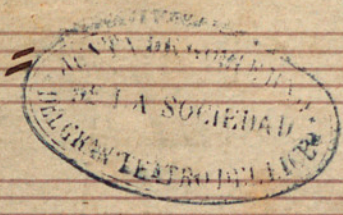 JUNTA DE GOBIERNO
DE LA SOCIEDAD
DEL GRAN TEATRO DEL LICEO